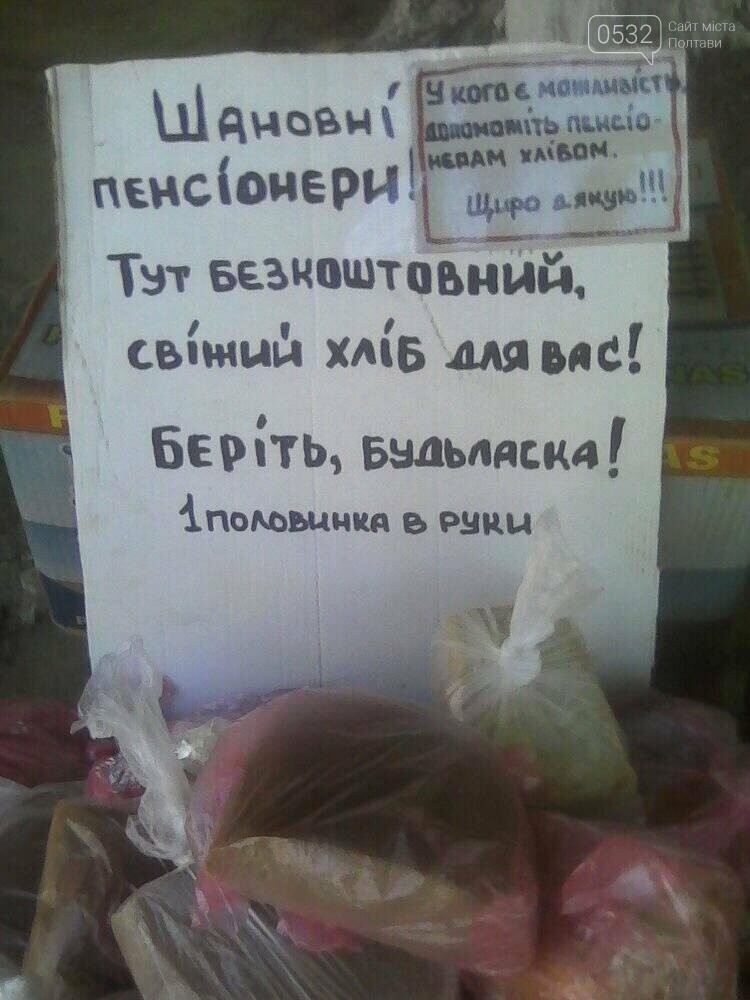 0532 Сайт міста
Полтави
Шановні
пенсіонери!
У кого є можливість,
допоможіть пенсіо-
нерам хлівом.
Щиро дякую!!!
Тут безкоштовний,
свіжий хліб для вас!
Беріть, будьласка!
1 половинка в руки
AS